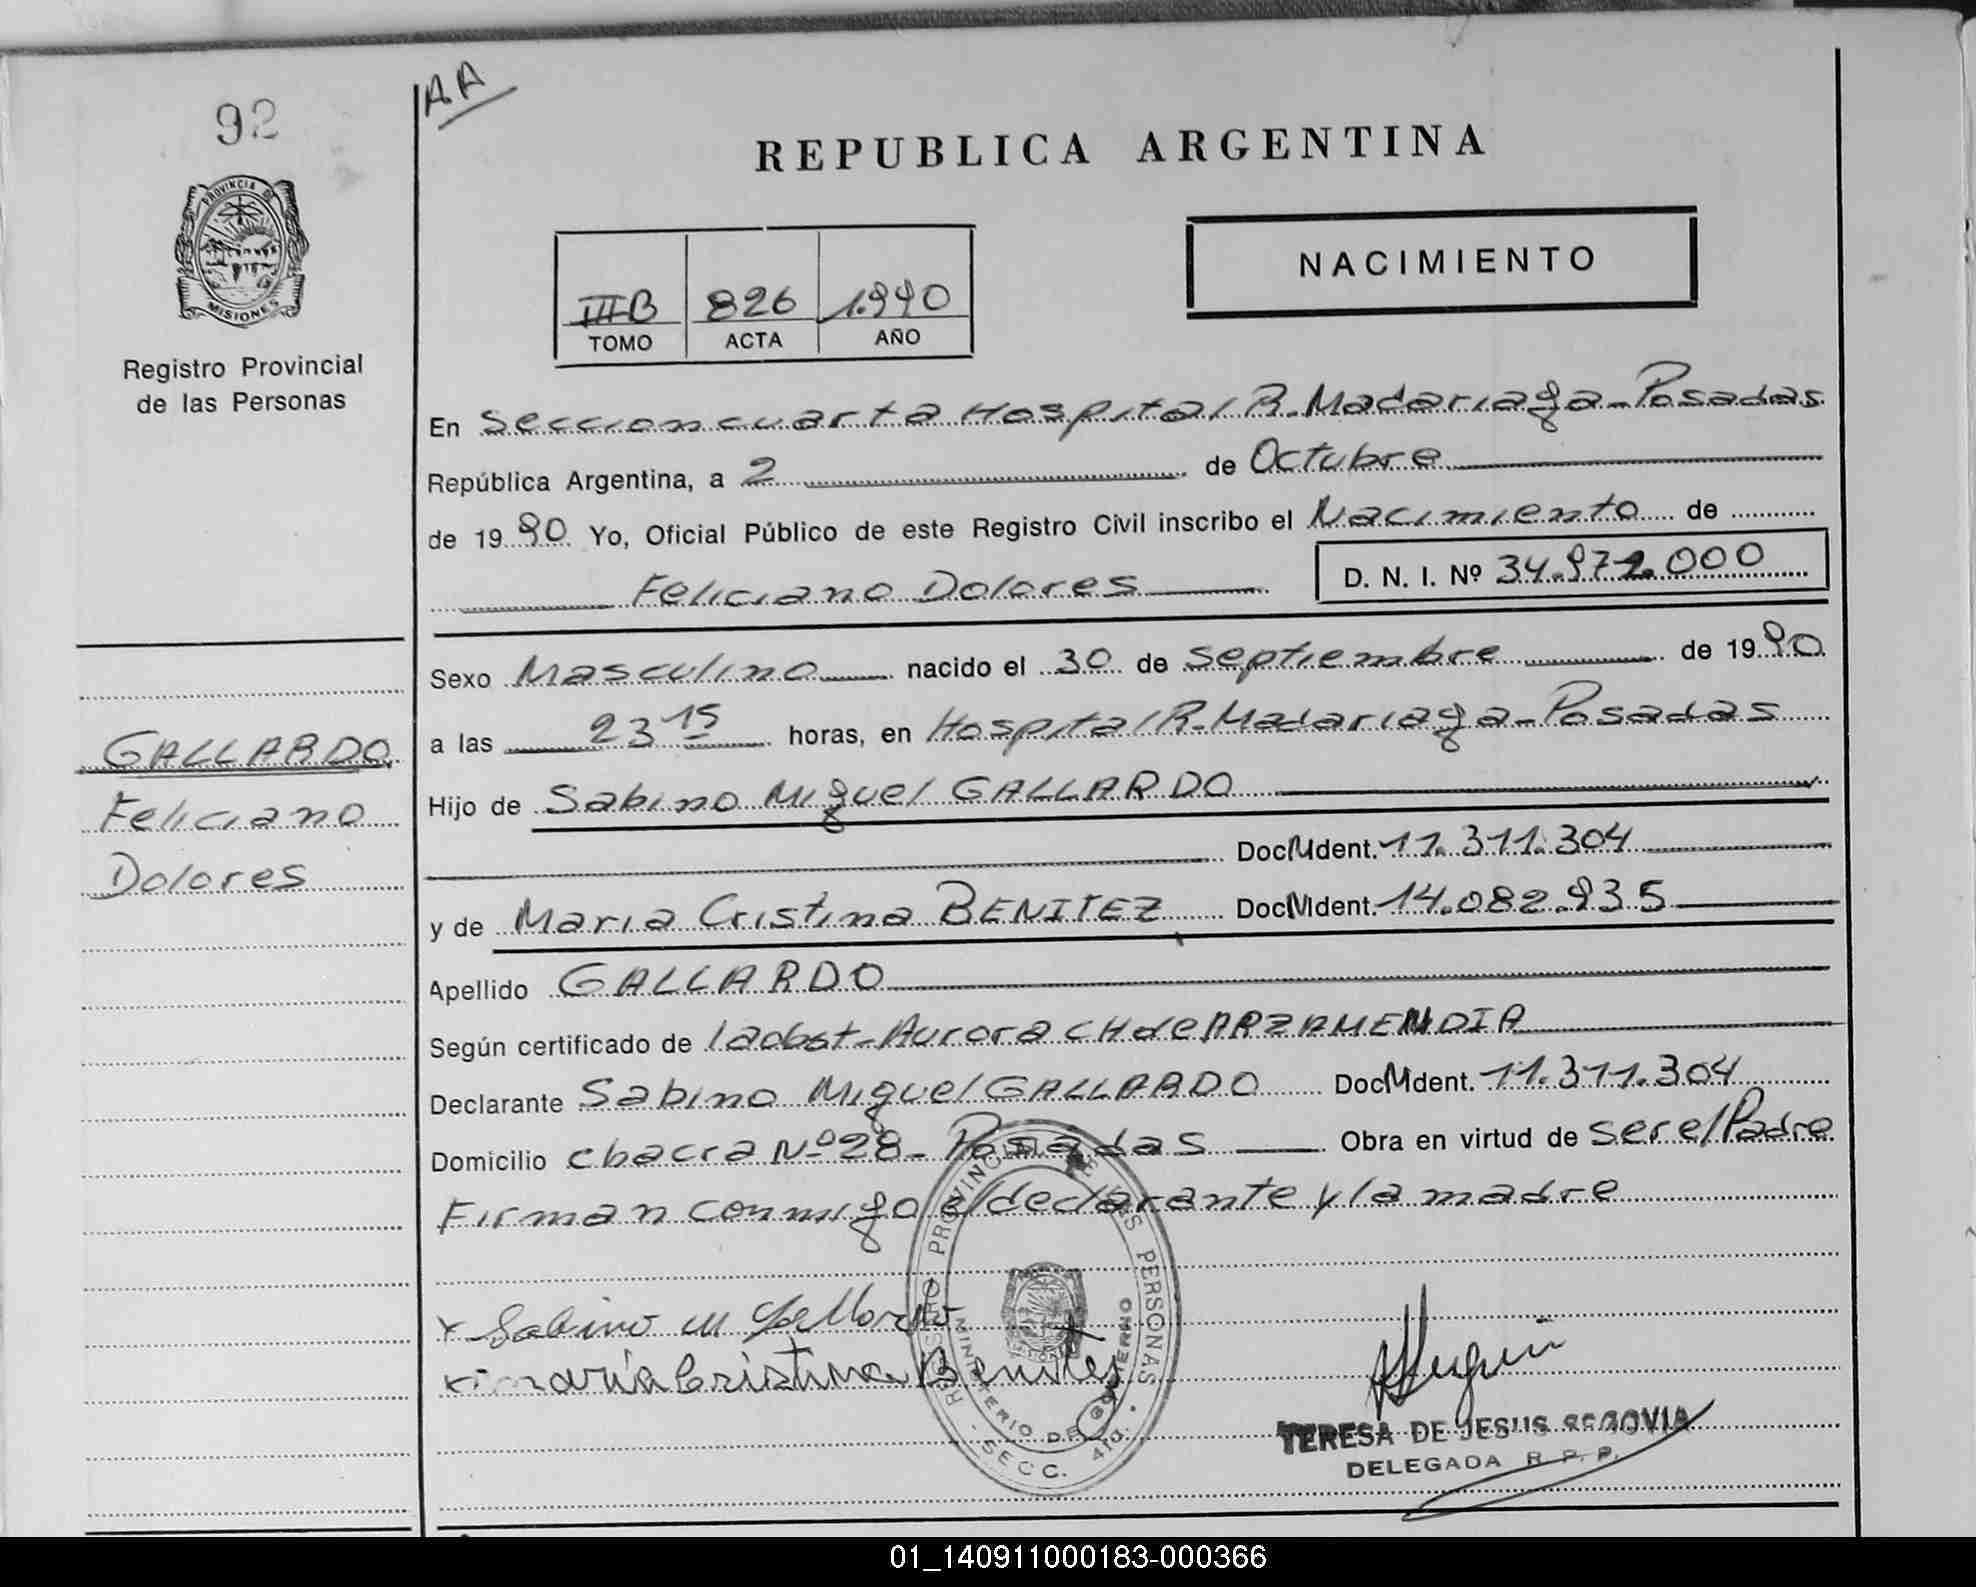 92
AA
REPUBLICA ARGENTINA
PROVINCIA DE
MISIONES
Registro Provincial
de las Personas
NACIMIENTO
III B 826 1.990
TOMO ACTA AÑO
En Seccion cuarta Hospital R. Madariaga - Posadas
República Argentina, a 2 de Octubre
de 1990 Yo, Oficial Público de este Registro Civil inscribo el Nacimiento de
Feliciano Dolores D. N. I. Nº 34.972.000
Sexo Masculino nacido el 30 de Septiembre de 1990
a las 23 15 horas, en Hospital R. Madariaga - Posadas
Hijo de Sabino Miguel GALLARDO
Doc M Ident. 11.311.304
y de Maria Cristina BENITEZ Doc M Ident. 14.082.935
Apellido GALLARDO
Según certificado de la obst - Aurora CH de ARZAMENDIA
Declarante Sabino Miguel GALLARDO Doc M Ident. 11.311.304
Domicilio chacra Nº 28 - Posadas Obra en virtud de ser el Padre
Firman conmigo el declarante y la madre
x Sabino M Gallardo
x Maria Cristina Benites
GALLARDO
Feliciano
Dolores
REGISTRO PROVINCIAL DE LAS PERSONAS
MINISTERIO DE GOBIERNO
- SECC. 4TO. -
MISIONES
TERESA DE JESUS SEGOVIA
DELEGADA R. P. P.
01_140911000183-000366